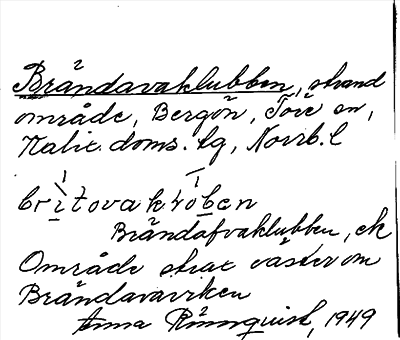 Brändavaklubben, strand
område, Bergön, Töre sn,
Kalix. doms. tg, Norrb. l
Brändöfvaklubben, ek
Område strax väster om
Brändavaviken
Anna Rönnquist, 1949